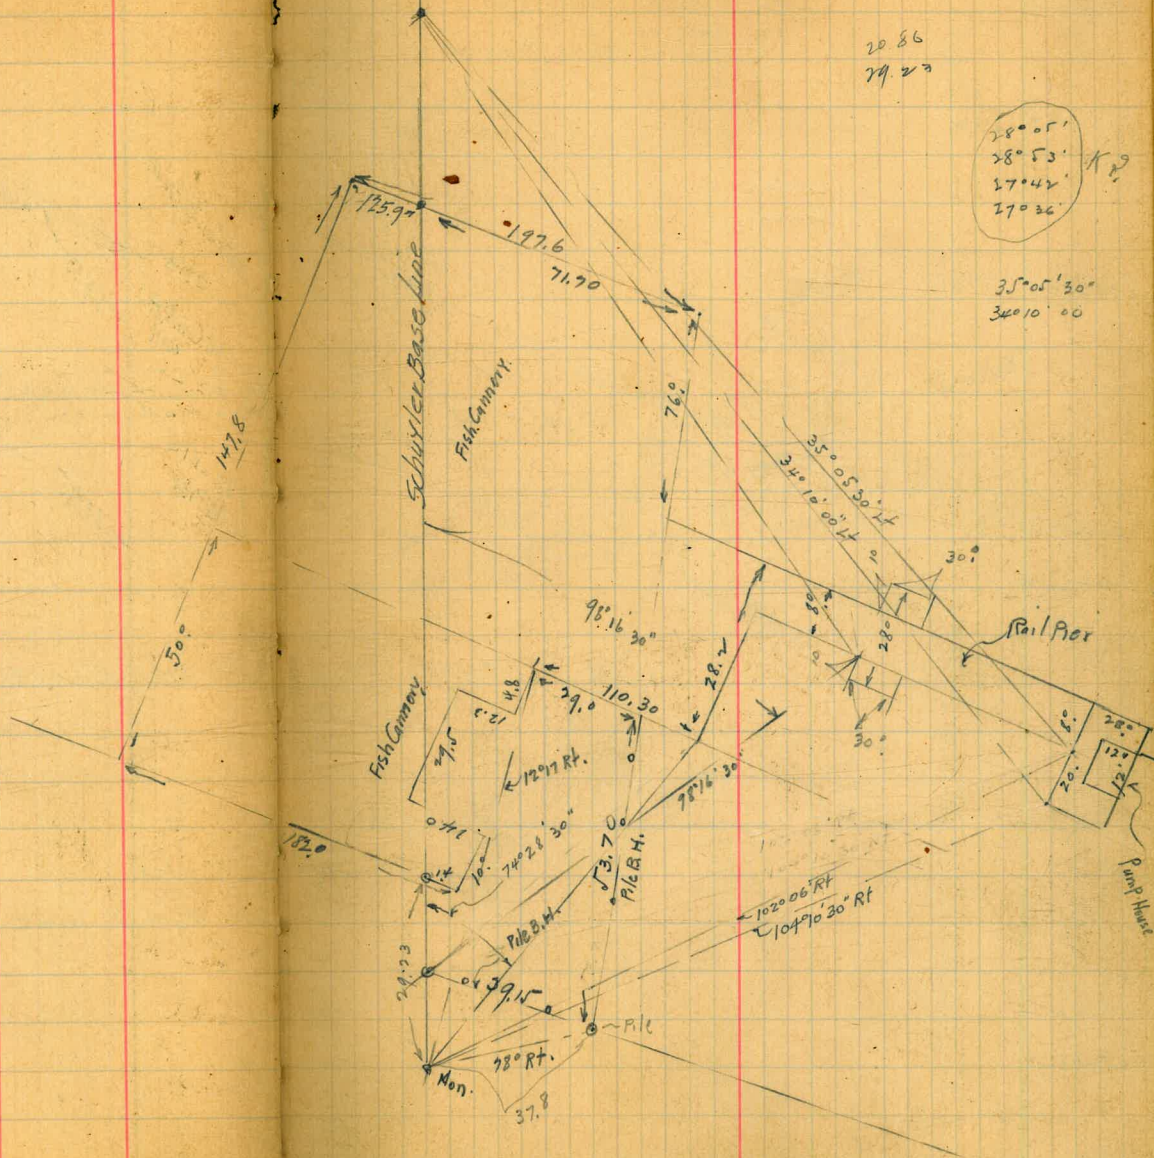 20.86
29.23
28° 05'
28° 53'
27° 42'
27° 36'
35° 05' 30"
34° 10' 00
125.9
197.6
71.90
Schuyler Base Line
Fish Cannery
147.8
76.0
35° 05' 30" Lt
34° 10' 00" Lt
50.0
98° 16' 30"
10
30.0
28.0
Rail Pier
28.2
10
30.0
4.8
29.0
110.30
12.2
29.5
Fish Cannery
12° 17' Rt.
98° 16' 30"
8.0
28.0
12.0
12.0
20.0
Pump House
182.0
10.0
74° 28' 30"
53.70
Pile B.H.
Pile B.H.
102° 06' Rt
104° 10' 30" Rt
29.23
39.15
Pile
78° Rt.
Mon.
37.8